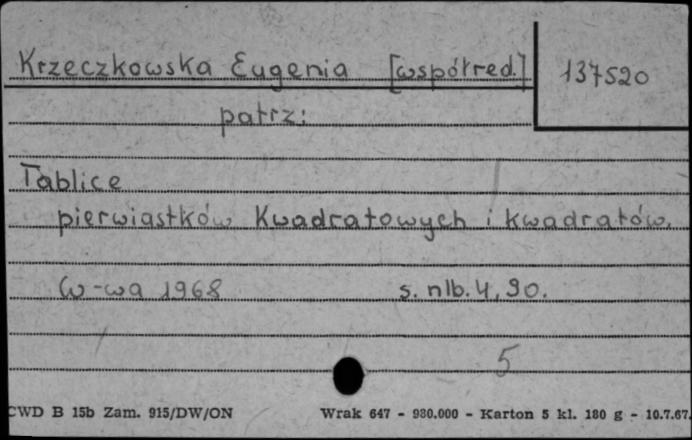 Krzeczkowska Eugenia [współred.] 137520
patrz:
Tablice
pierwiastków Kwadratowych i kwadratów.
W-wa 1968 s. nlb. 4, 90.
5
CWD B 15b Zam. 915/DW/ON Wrak 647 - 980.000 - Karton 5 kl. 180 g - 10.7.67.